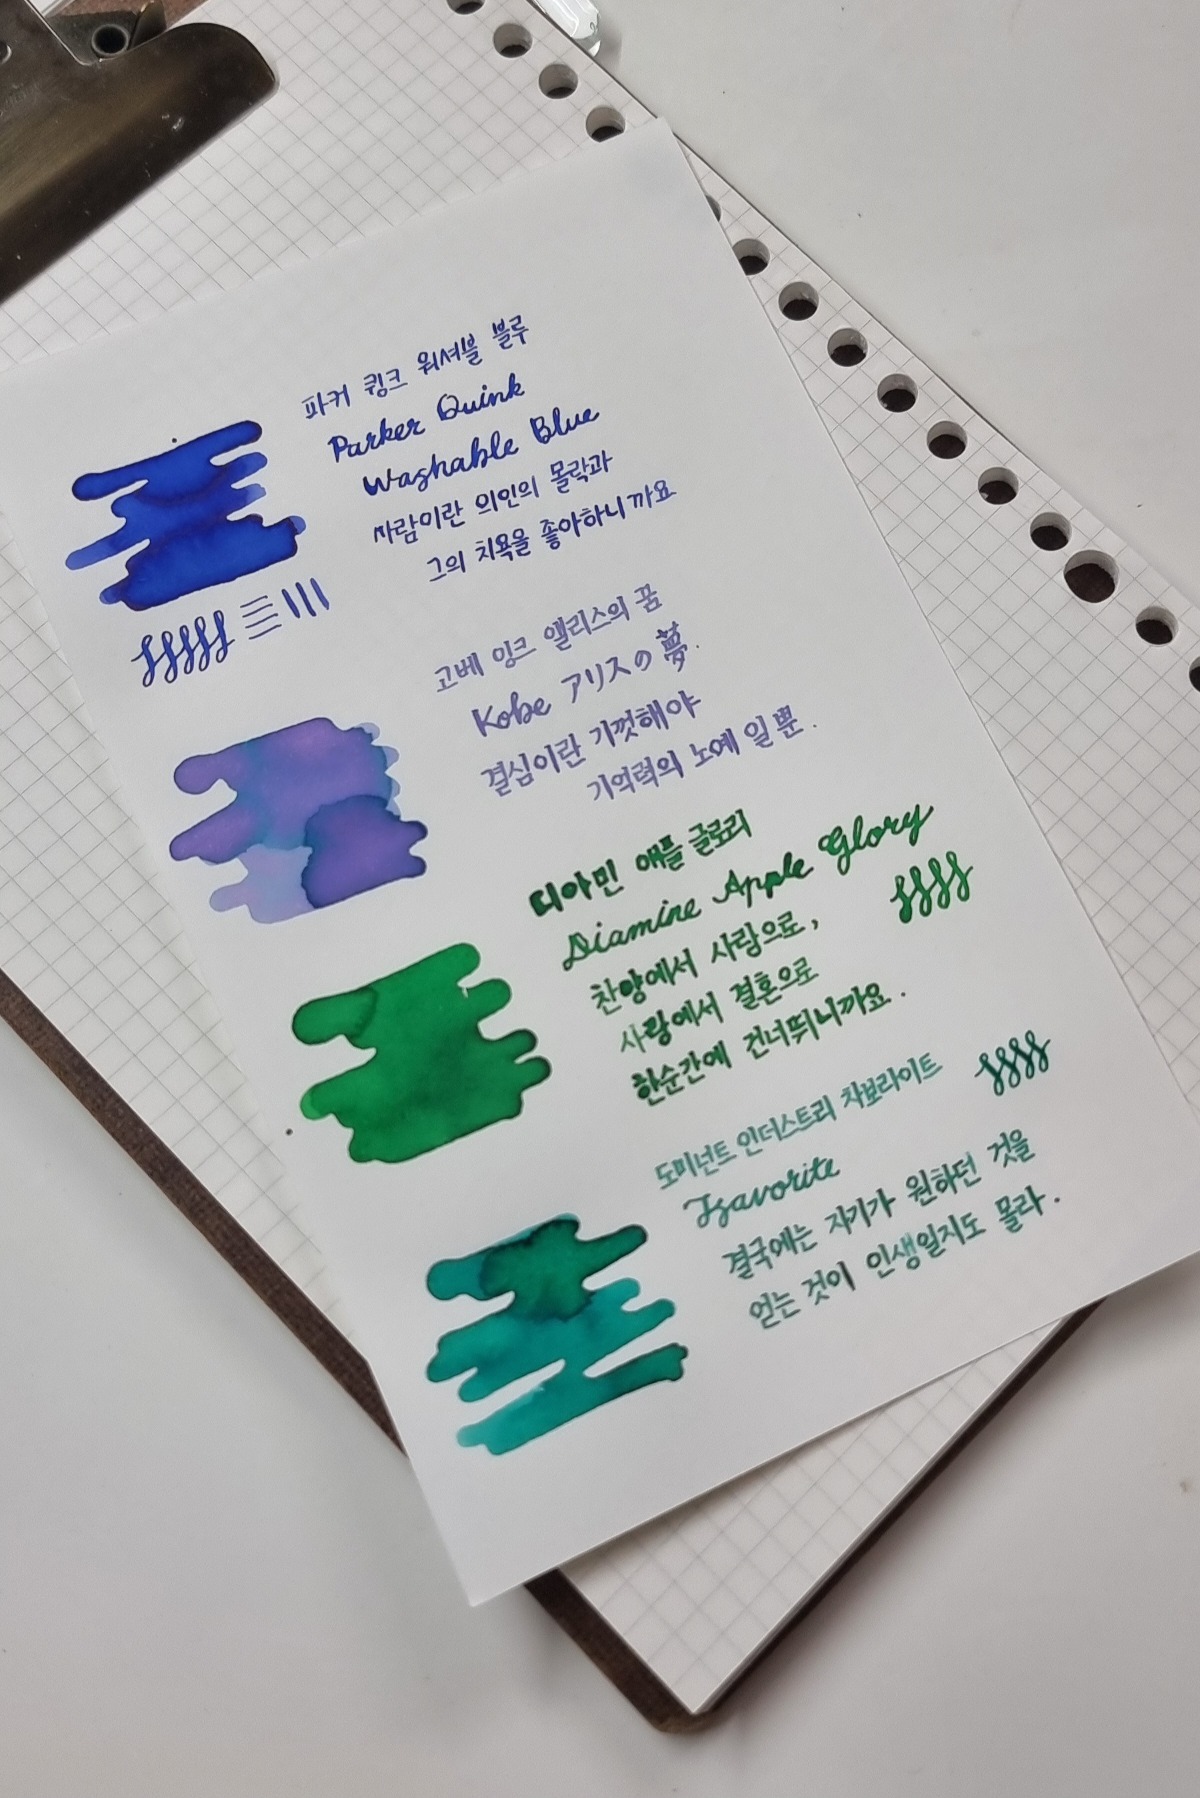 파커 큉크 워셔블 블루
Parker Quink
Washable Blue
사람이란 의인의 몰락과
그의 치욕을 좋아하니까요
고베 잉크 앨리스의 꿈
Kobe アリスの夢.
결심이란 기껏해야
기억력의 노예 일 뿐.
디아민 애플 글로리
Diamine Apple Glory
찬양에서 사랑으로,
사랑에서 결혼으로
한순간에 건너뛰니까요.
도미넌트 인더스트리 차보라이트
Tsavorite
결국에는 자기가 원하던 것을
얻는 것이 인생일지도 몰라.